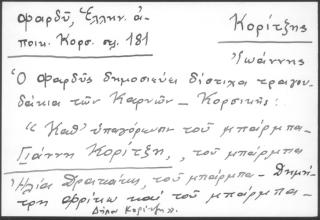 Φαρδῦ, Ἑλλην. ἀ-
ποικ. Κορσ. σς. 181
Κορίτζης
Ἰωάννης
Ὁ Φαρδῦς δημοσιεύει δίστιχα τραγου-
δάκια τῶν Καρυῶν – Κορσικῆς:
"Καθ' ὑπαγόρευσιν τοῦ μπάρμπα-
Γιάννη Κορίτζη, , τοῦ μπάρμπα
Ἠλία, τοῦ μπάρμπα Δημή-
τρη καί τοῦ μπάρμπα-